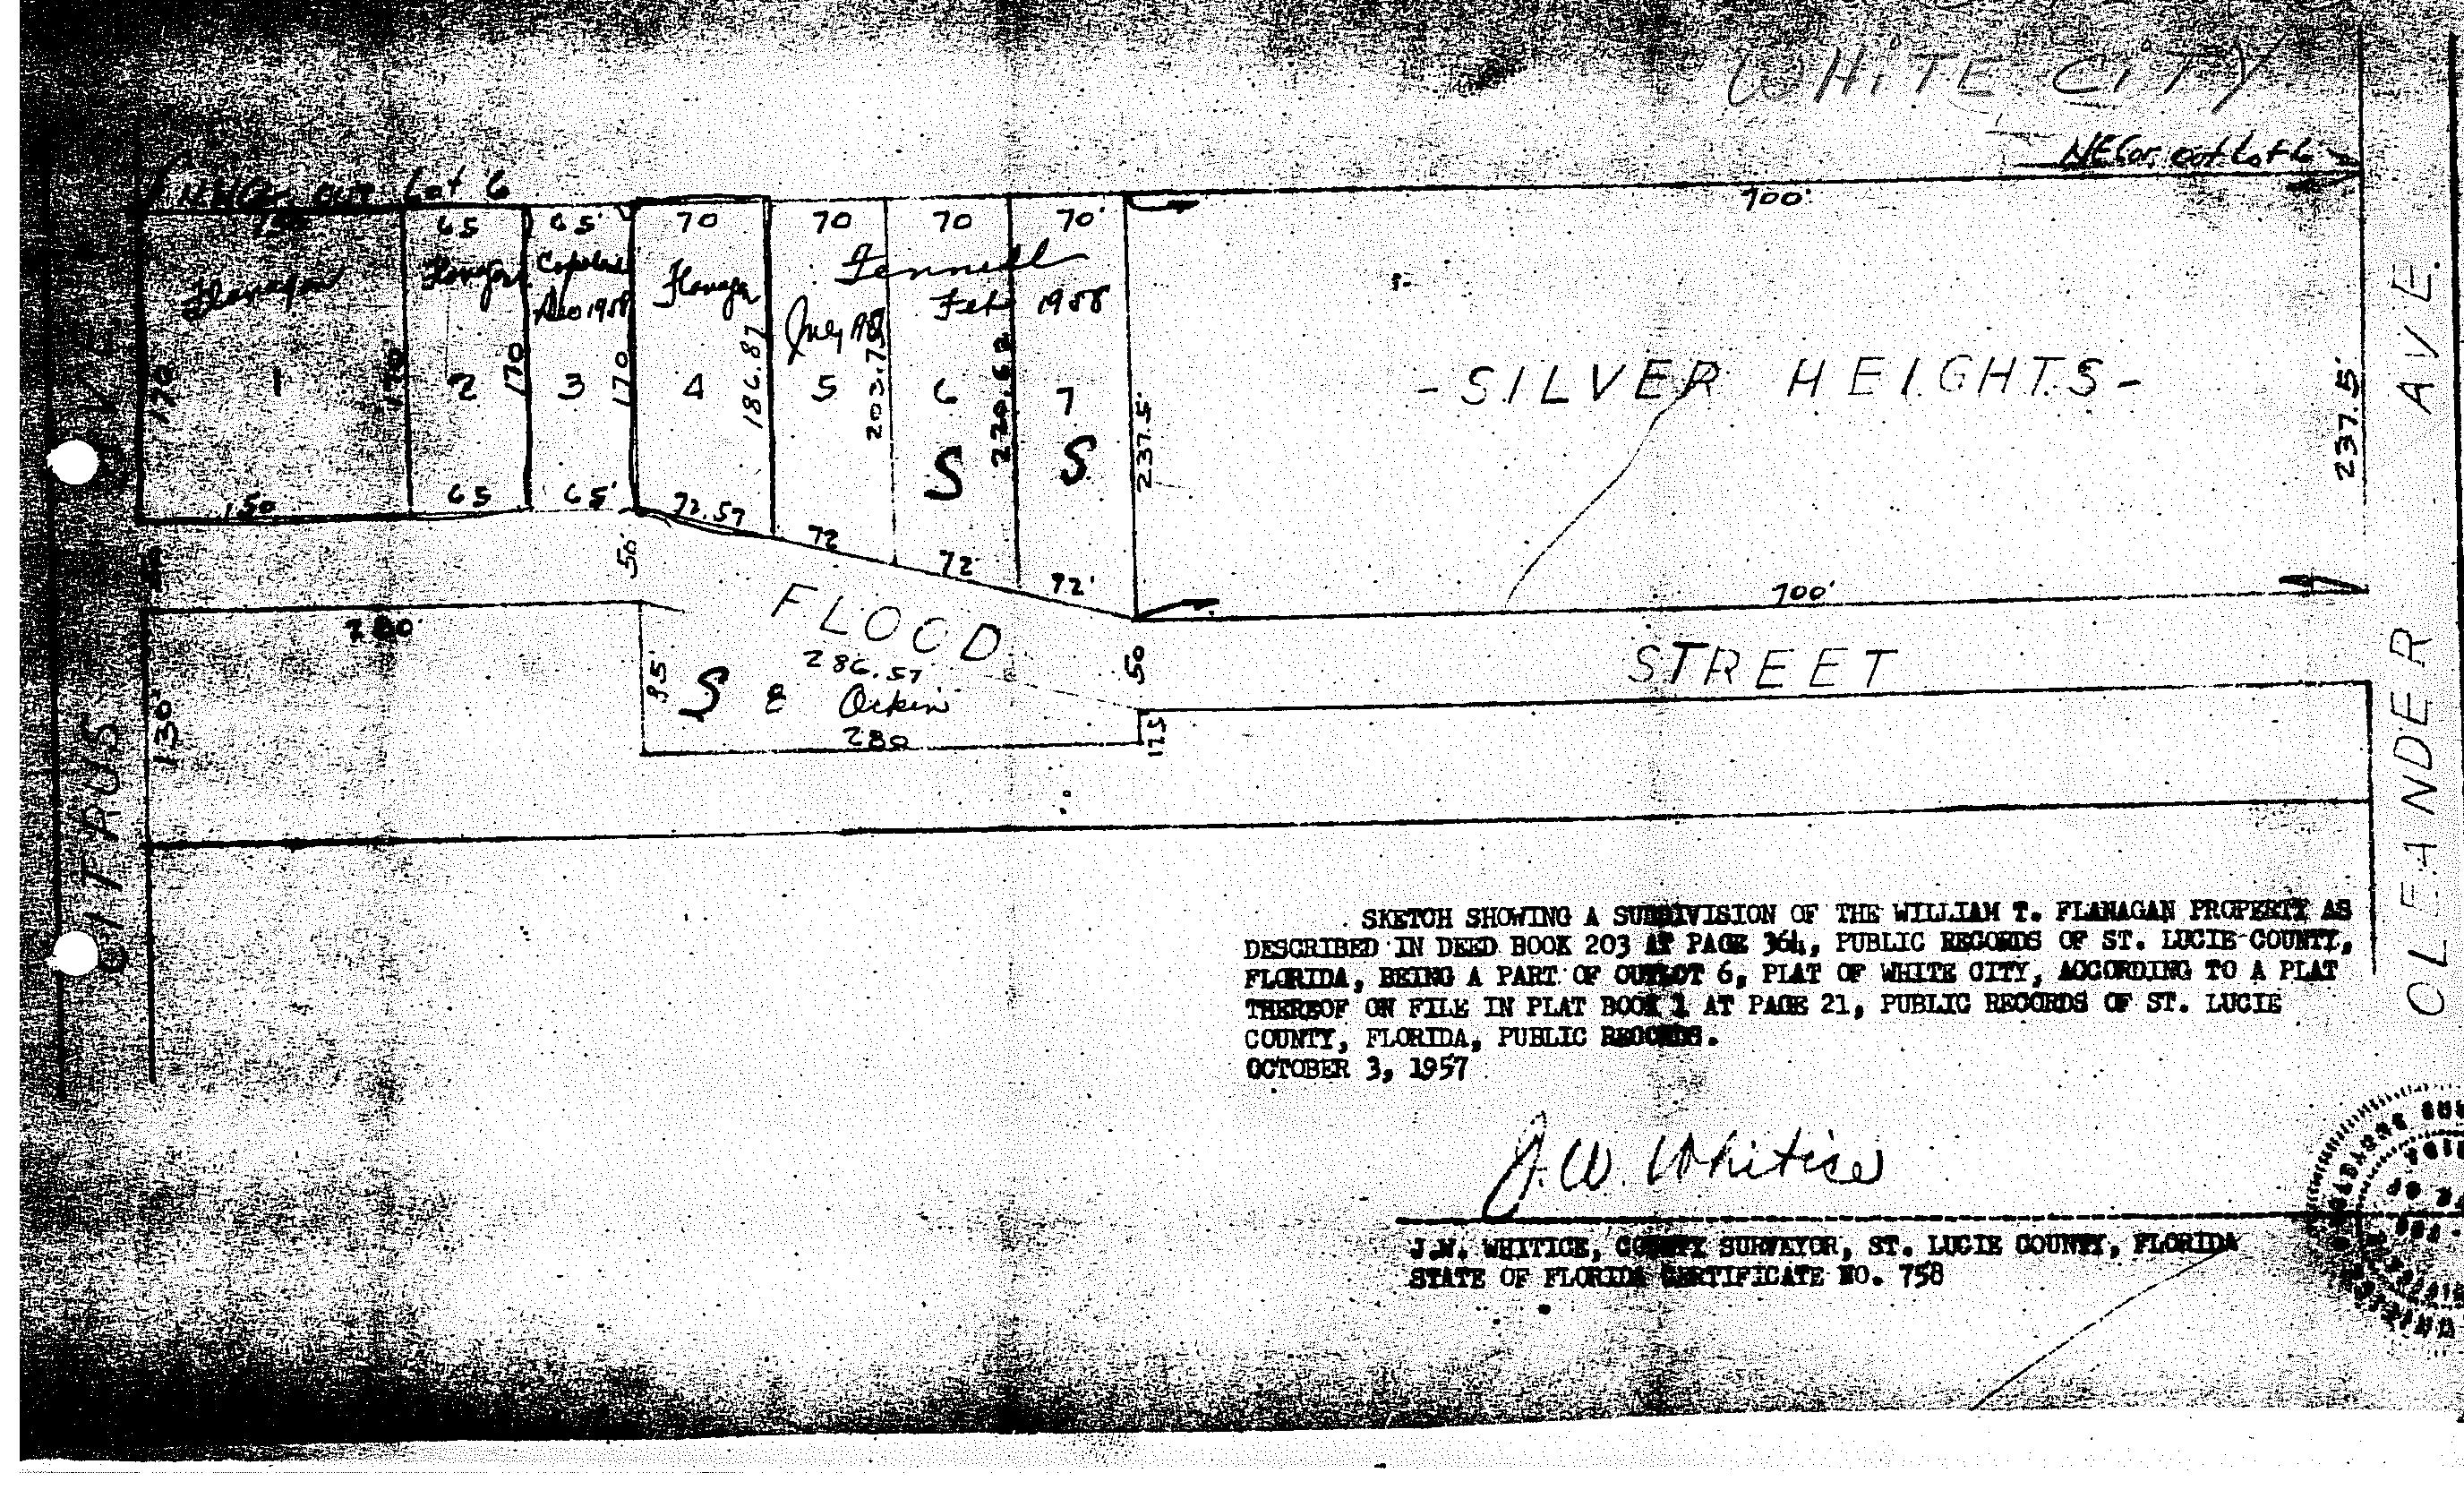 WHITE CITY
NE Cor. out Lot 6
NW Cor. out Lot 6
150 65 65' 70 70 70 70' 700'
Flanagan Flanagan Copeland Flanagan Fennell
Dec 1958 July Feb 1958
170 170 170 170 186.87 203.75 220.62 237.5' 237.5'
1 2 3 4 5 6 7
- SILVER HEIGHTS -
S S
150 65 65' 72.57 72 72 72'
50 50'
700'
280'
FLOOD STREET
286.57
85' S 8 Ockin 50
280 17.5
130'
CITRUS AVE
OLEANDER AVE.
SKETCH SHOWING A SUBDIVISION OF THE WILLIAM T. FLANAGAN PROPERTY AS
DESCRIBED IN DEED BOOK 203 AT PAGE 364, PUBLIC RECORDS OF ST. LUCIE COUNTY,
FLORIDA, BEING A PART OF OUTLOT 6, PLAT OF WHITE CITY, ACCORDING TO A PLAT
THEREOF ON FILE IN PLAT BOOK 1 AT PAGE 21, PUBLIC RECORDS OF ST. LUCIE
COUNTY, FLORIDA, PUBLIC RECORDS.
OCTOBER 3, 1957
J. W. Whitice
J.W. WHITICE, COUNTY SURVEYOR, ST. LUCIE COUNTY, FLORIDA
STATE OF FLORIDA CERTIFICATE NO. 758